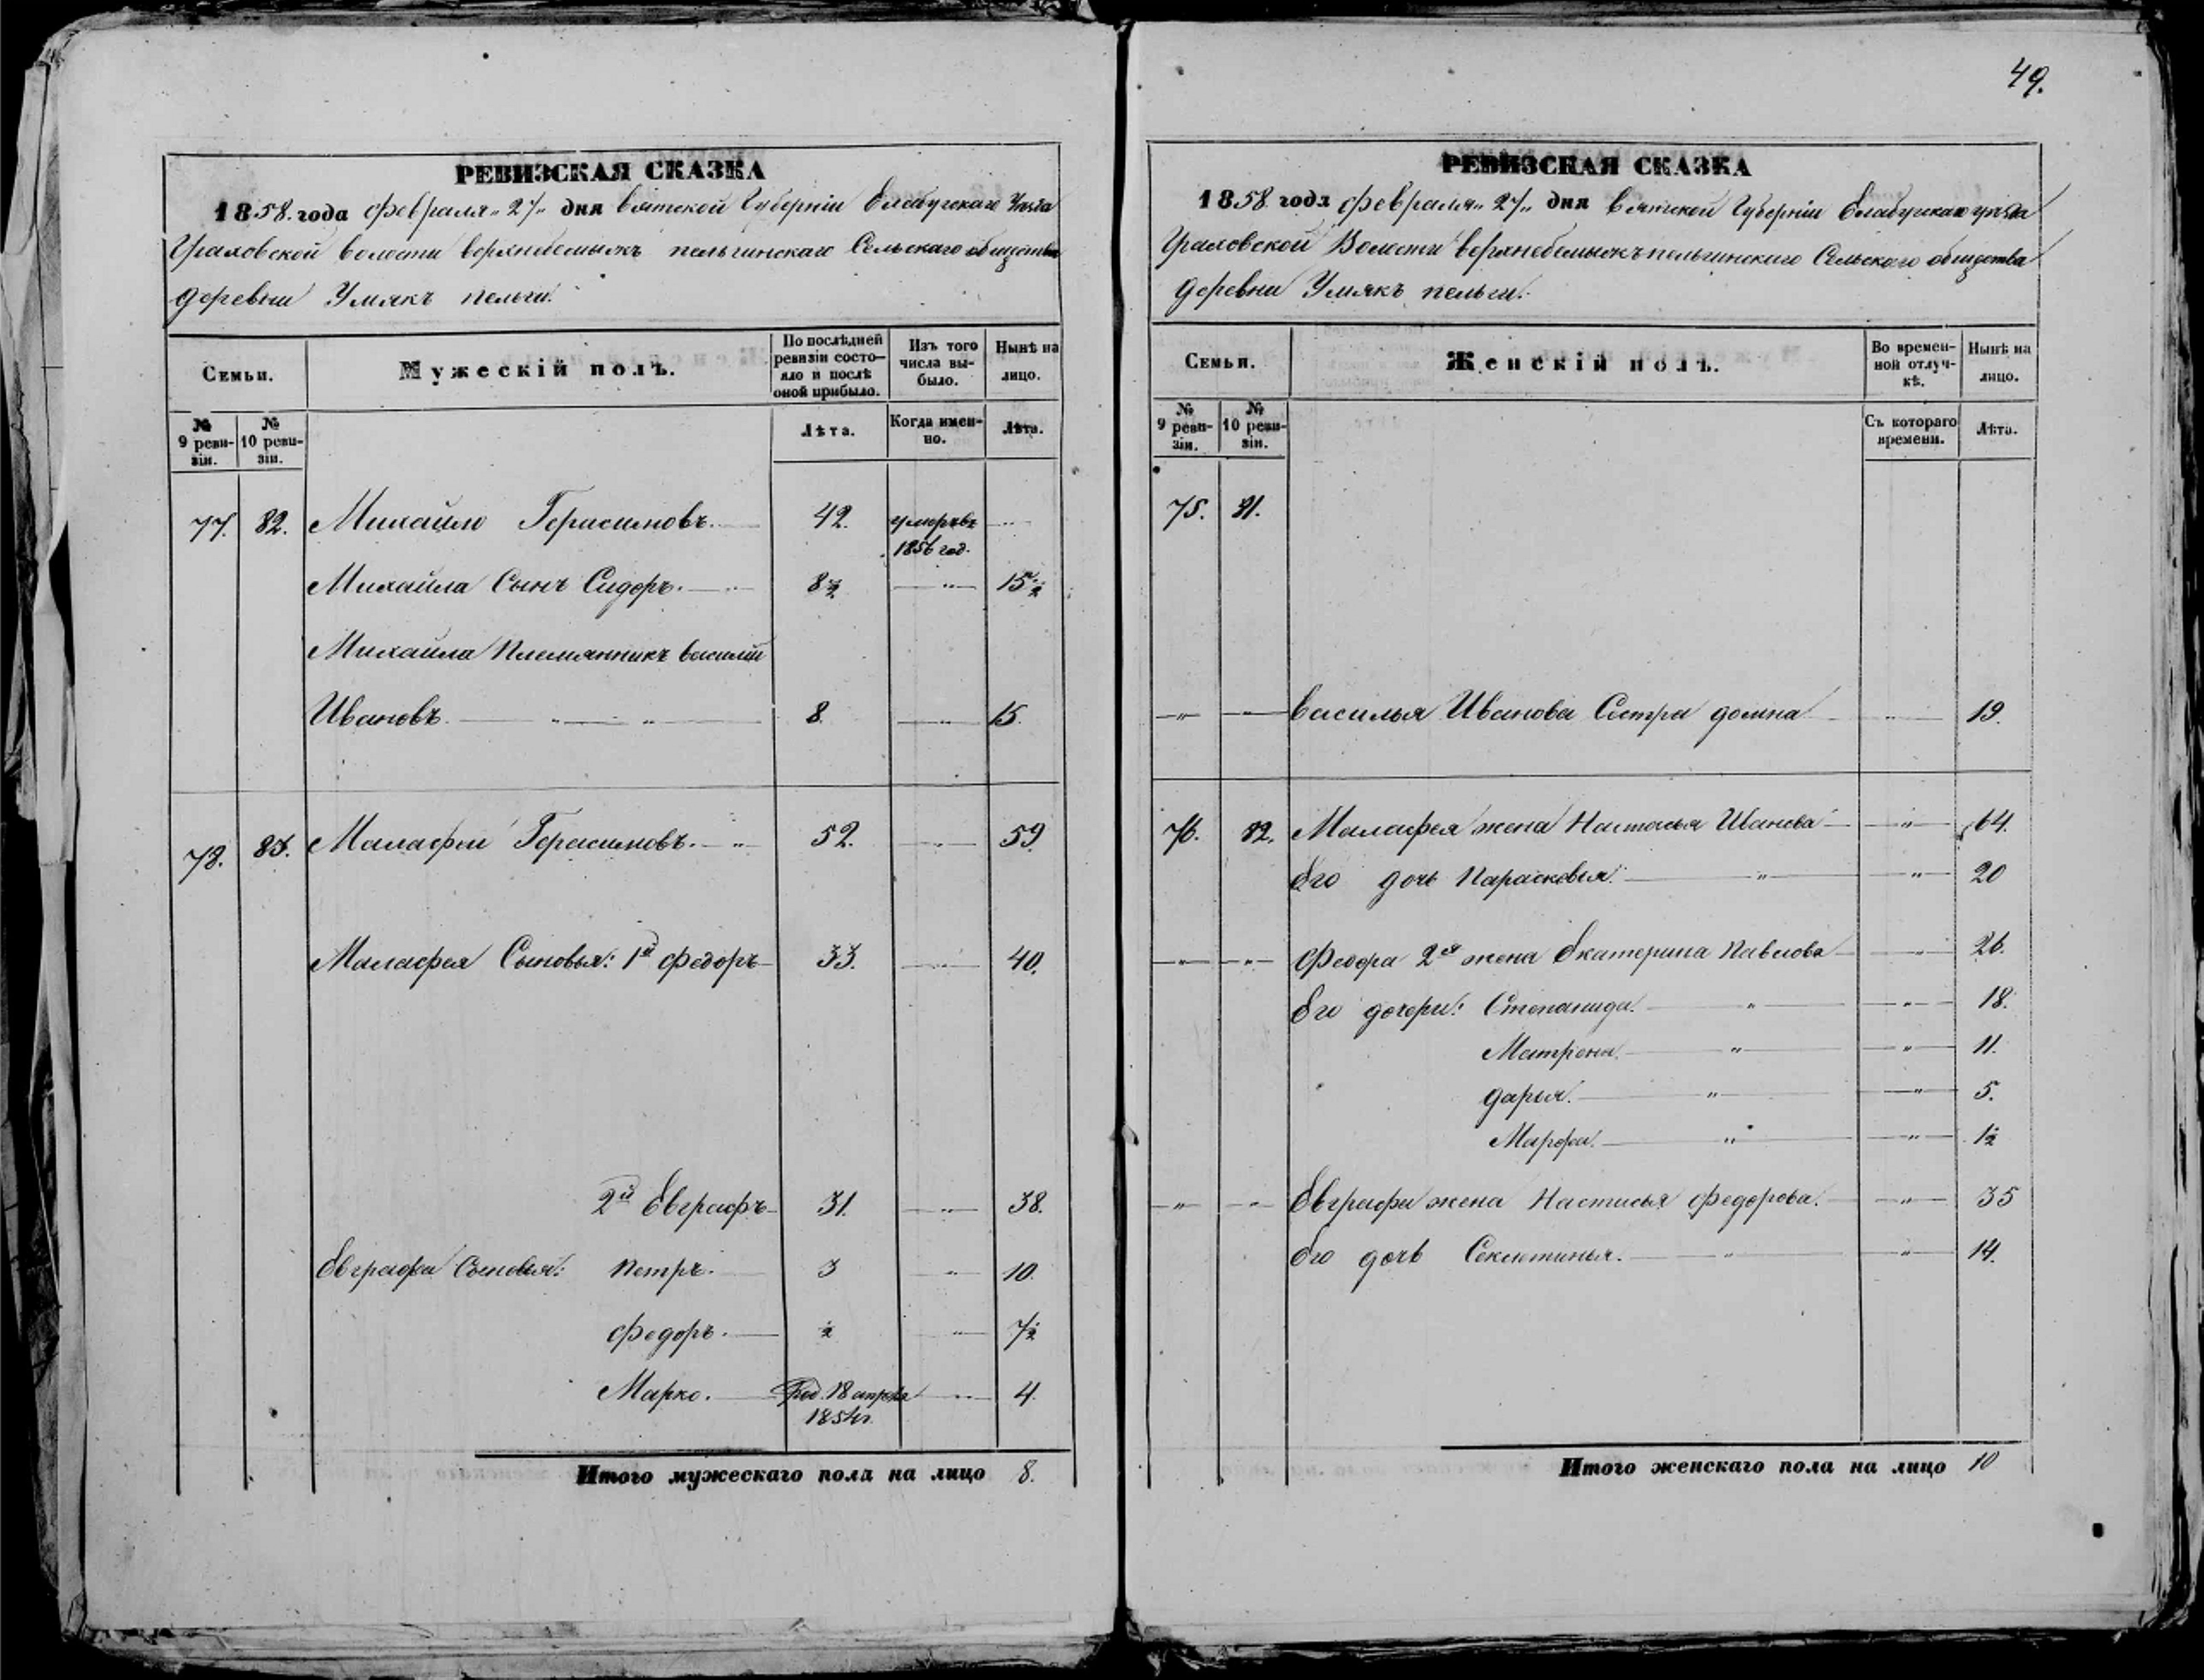 РЕВИЗСКАЯ СКАЗКА
1858. года февраля „27„ дня вятской Губерніи Елабугскаго Уезда
Граховской волости верхнебемыжъ пельгинскаго Сельскаго общества
деревни Умякъ пельги.
Семьи.
Мужескій полъ.
По послѣдней ревизіи состо-
яло и послѣ
оной прибыло.
Изъ того
числа вы-
было.
Нынѣ на
лицо.
№
9 реви-
зіи.
№
10 реви-
зіи.
Лѣта.
Когда имен-
но.
Лѣта.
77. 82. Михайло Герасимовъ. 42. умеръ въ
1856 год.
Михайла Сынъ Сидоръ. 8½ „ 15½
Михайла Племянникъ Василій
Ивановъ „ „ 8. „ 15.
78. 83. Малафеи Герасимовъ. „ 52. „ 59.
Малафея Сыновья: 1й Федоръ 33. „ 40.
2й Евграфъ 31. „ 38.
Евграфа Сыновья: Петръ. 3 „ 10.
Федоръ. ½ „ 7½
Марко. Род. 18 апреля „ 4.
1854г.
Итого мужескаго пола на лицо 8.
49.
РЕВИЗСКАЯ СКАЗКА
1858 года февраля „27„ дня Вятской Губерніи Елабугскаго уезда
Граховской Волости верхнебемыжъ пельгинскаго Сельскаго общества
деревни Умякъ пельги.
Семьи.
Женскій полъ.
Во времен-
ной отлуч-
кѣ.
Нынѣ на
лицо.
№
9 реви-
зіи.
№
10 реви-
зіи.
Съ котораго
времени.
Лѣта.
75. 81.
„ Василья Иванова Сестра домна „ 19.
76. 82. Малафея жена Настасья Иванова „ 64.
Его дочь Парасковья. „ „ 20
„ „ Федора 2я жена Екатерина Павлова „ 26.
Его дочери: Степанида. „ „ 18.
Матрона. „ „ 11.
дарья. „ „ 5.
Марфа. „ „ 1½
„ „ Евграфа жена Настасья Федорова. „ 35
Его дочь Секлетинья. „ „ 14.
Итого женскаго пола на лицо 10